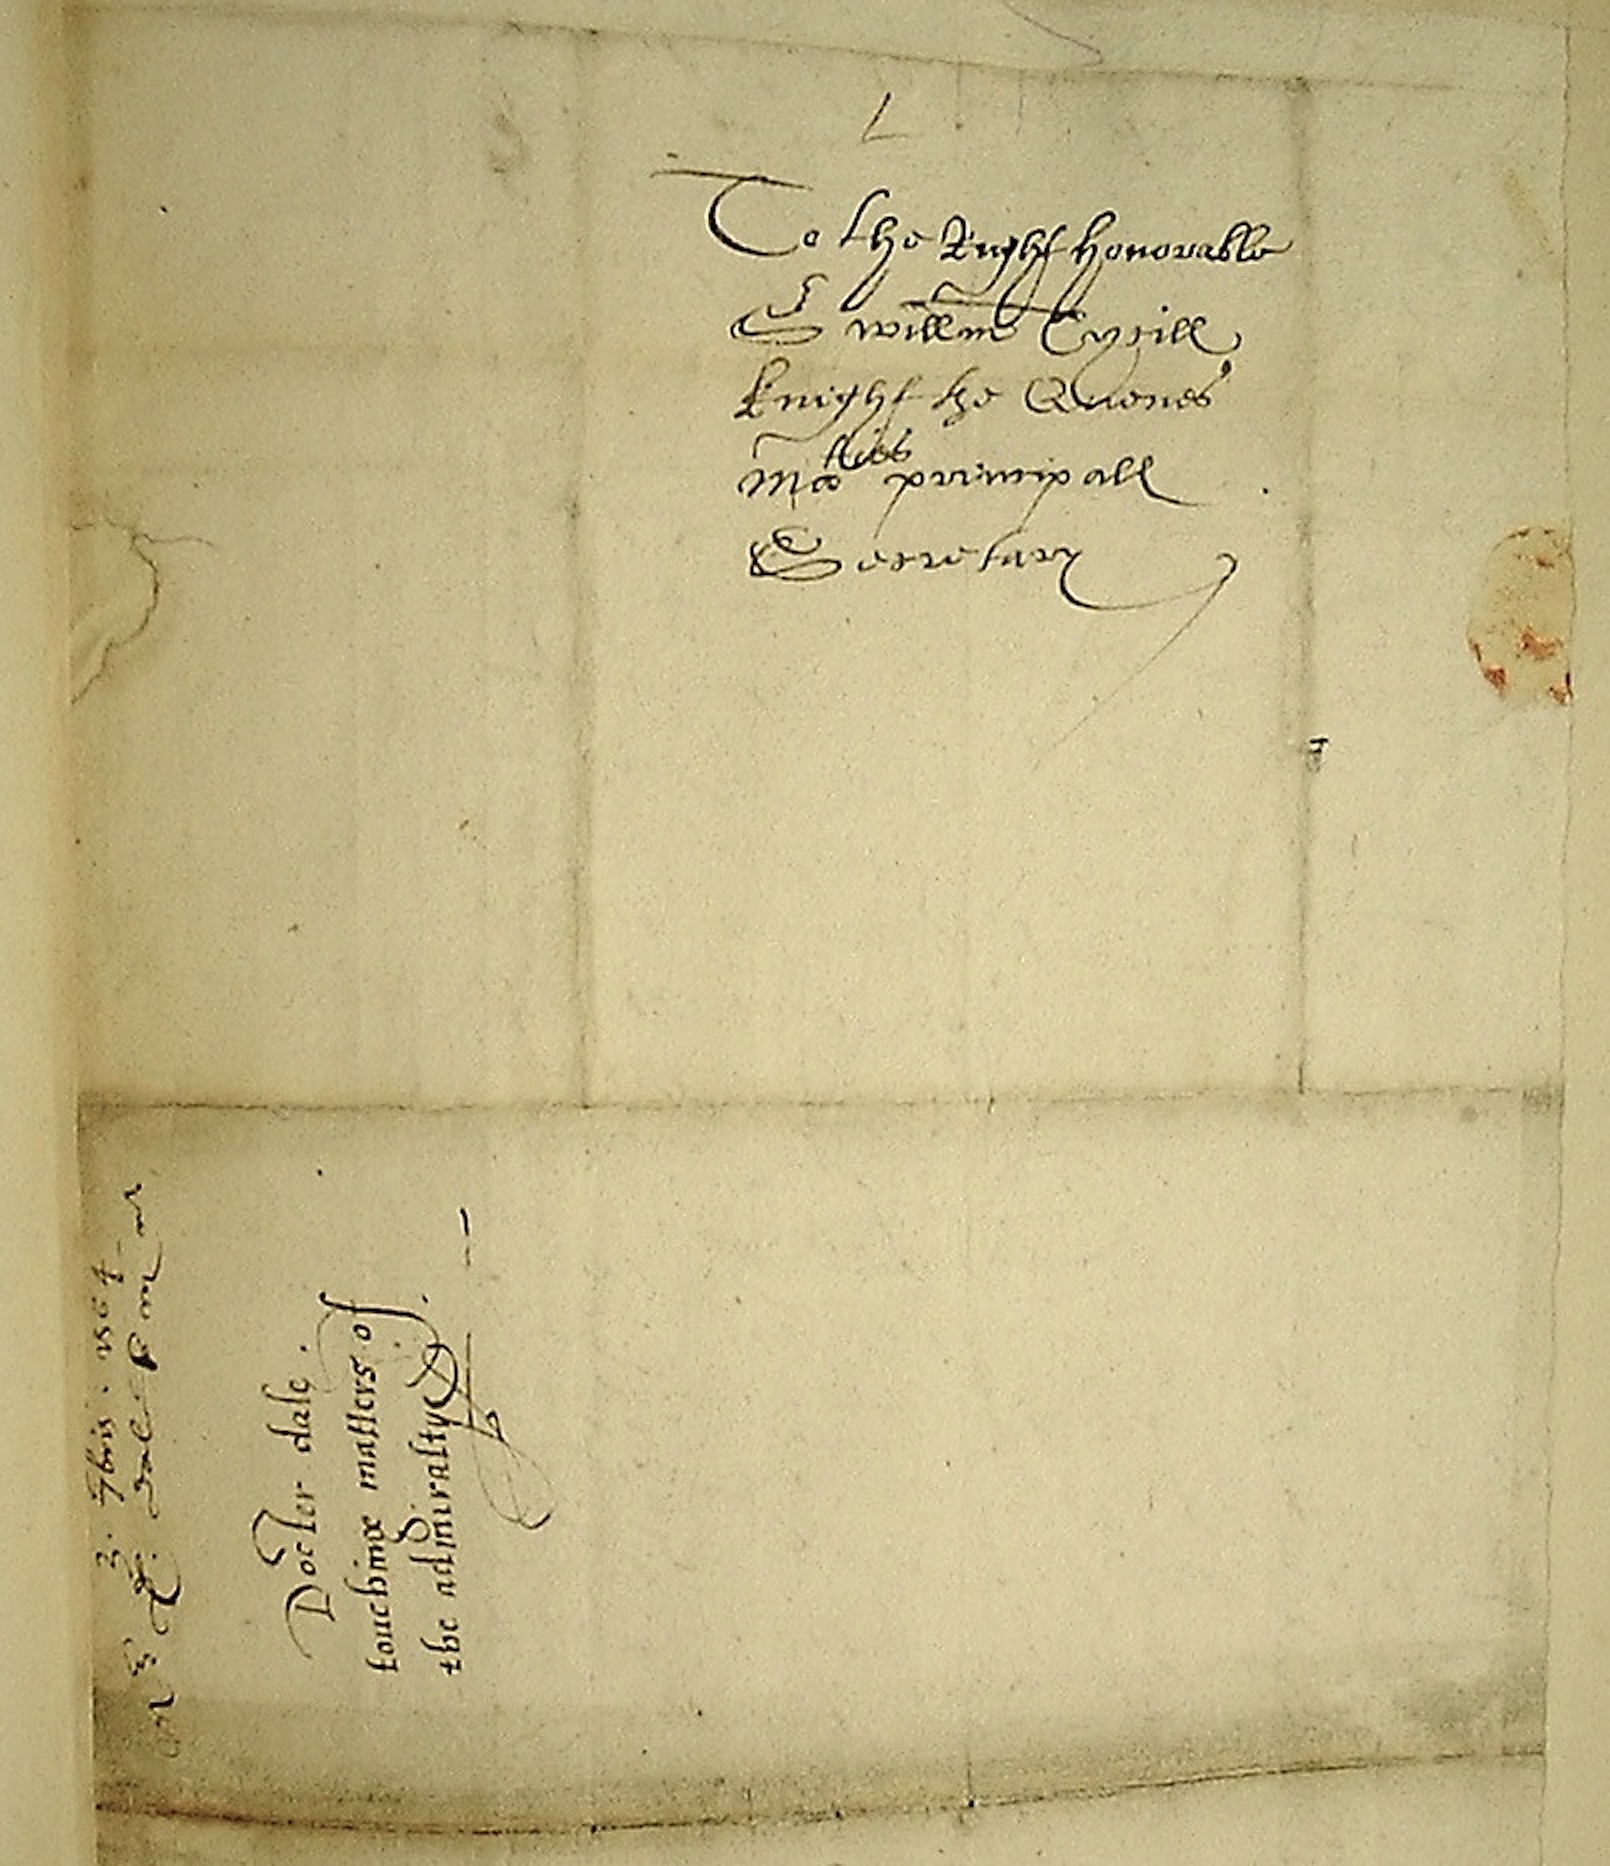 To the Right honorable
Sr willm Cycill
knight the Quenes
maties principall
Secretary
3. 7bris. 1564
Mr D. Dale
Docter dale.
touchinge matters of
the admiraltye